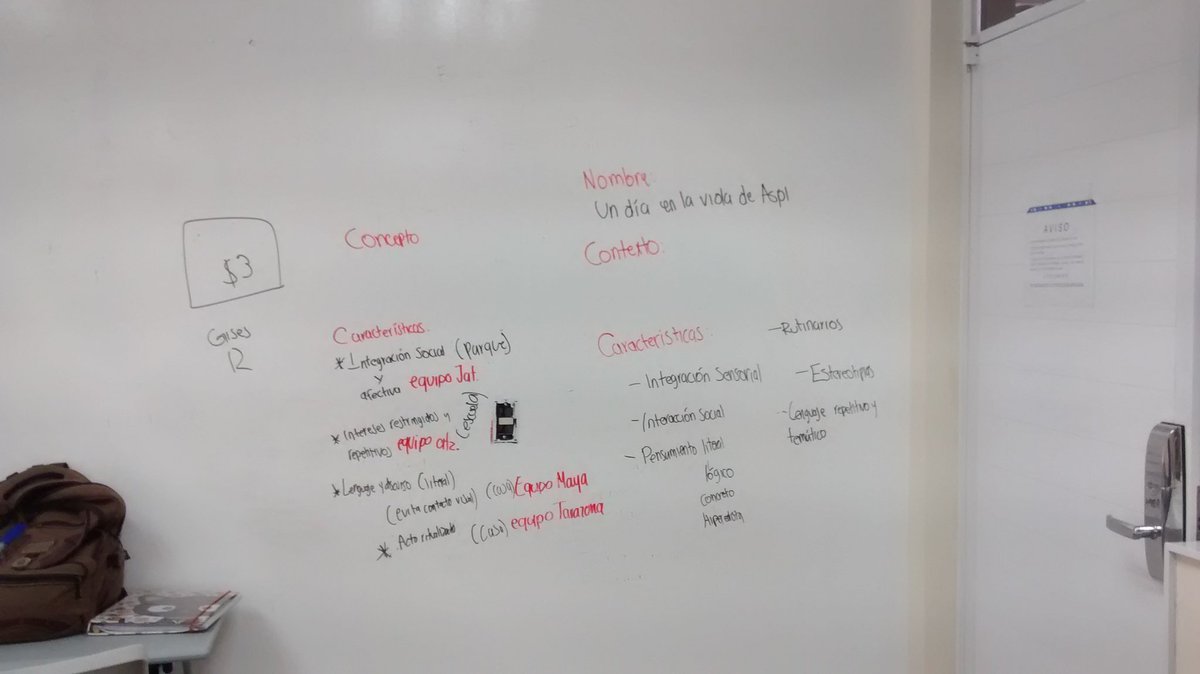 $3
Grises
12
Concepto
Características.
* Integración Social (parque)
y
afectiva equipo Jat.
* Intereses restringidos y
repetitivos equipo ortz.
(escuela)
* Lenguaje y discurso (literal)
(evita contacto visual) (casa) Equipo Maya
* Acto ritualizado (casa) equipo Tarazona
Nombre
Un día en la vida de Aspi
Contexto.
Características.
- Integración Sensorial
- Interacción Social
- Pensamiento literal
lógico
concreto
- Rutinarios
- Estereotipias
- Lenguaje repetitivo y
temático
AVISO